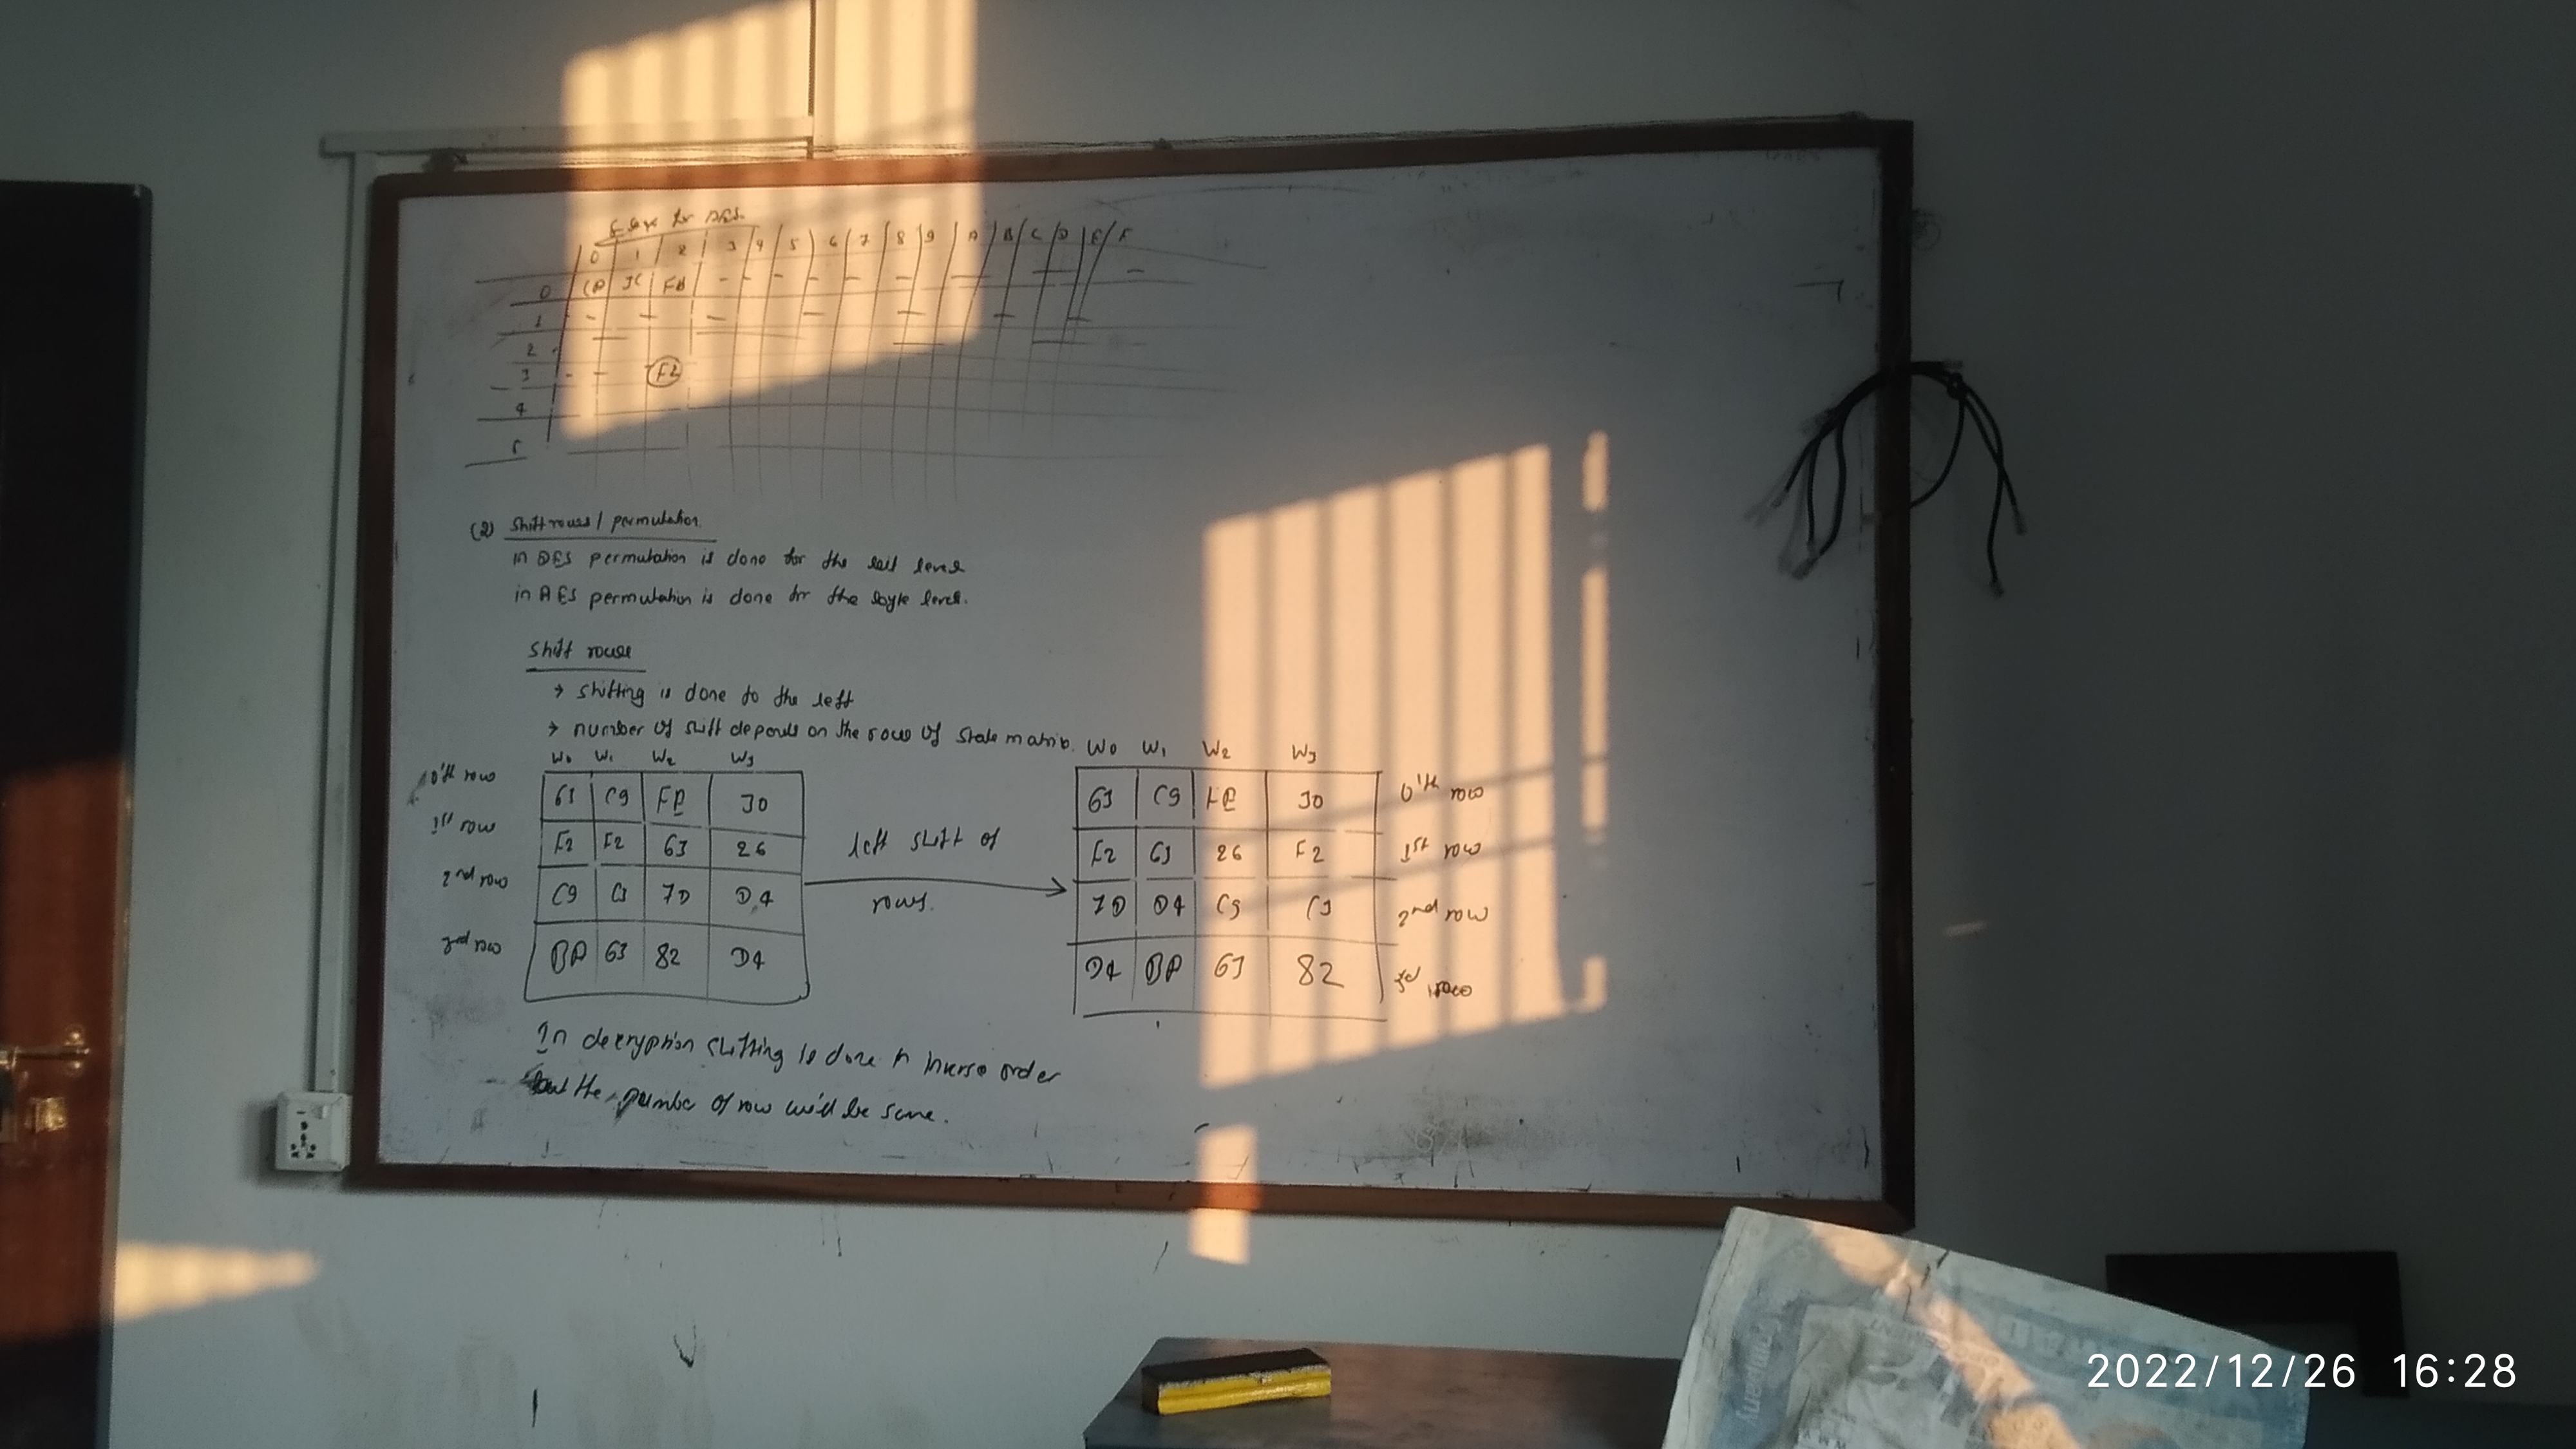 S box for AES
0 1 2 3 4 5 6 7 8 9 A B C D E F
0 FB - - - - - - - - -
1 - - - - - - -
2 -
3 - - F2
4
5
(2) Shift rows / permutation
in DES permutation is done for the bit level
in AES permutation is done for the byte level.
Shift rows
→ shifting is done to the left
→ number of shift depends on the row of state matrix.
W0 W1 W2 W3
0'th row 63 C9 FE 30
1st row F2 F2 63 26
2nd row C9 C3 7D D4
3rd row BA 63 82 D4
left shift of
rows.
W0 W1 W2 W3
63 C9 FE 30 0'th row
F2 63 26 F2 1st row
7D D4 C9 C3 2nd row
D4 BA 63 82 3rd row
In decryption shifting is done in inverse order
but the number of row will be same.
2022/12/26 16:28